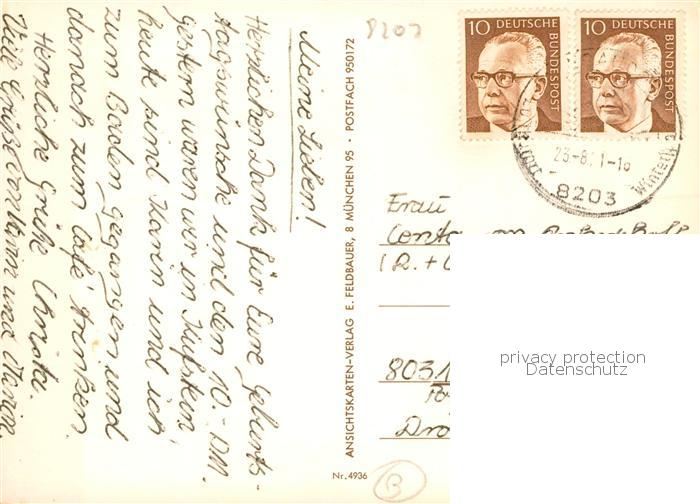 Meine Lieben!
Herzlichen Dank für Eure Geburts-
tagswünsche und den 10.-DM.
gestern waren wir in Kufstein
heute sind Karin und ich
zum Baden gegangen und
danach zum Café trinken
Herzliche Grüße Christa.
Viele Grüße von und
ANSICHTSKARTEN-VERLAG E. FELDBAUER, 8 MÜNCHEN 95 · POSTFACH 950172
Nr. 4936
8207
10 DEUTSCHE BUNDESPOST
10 DEUTSCHE BUNDESPOST
23-8. 1-18
8203
Frau
803
privacy protection
Datenschutz
B